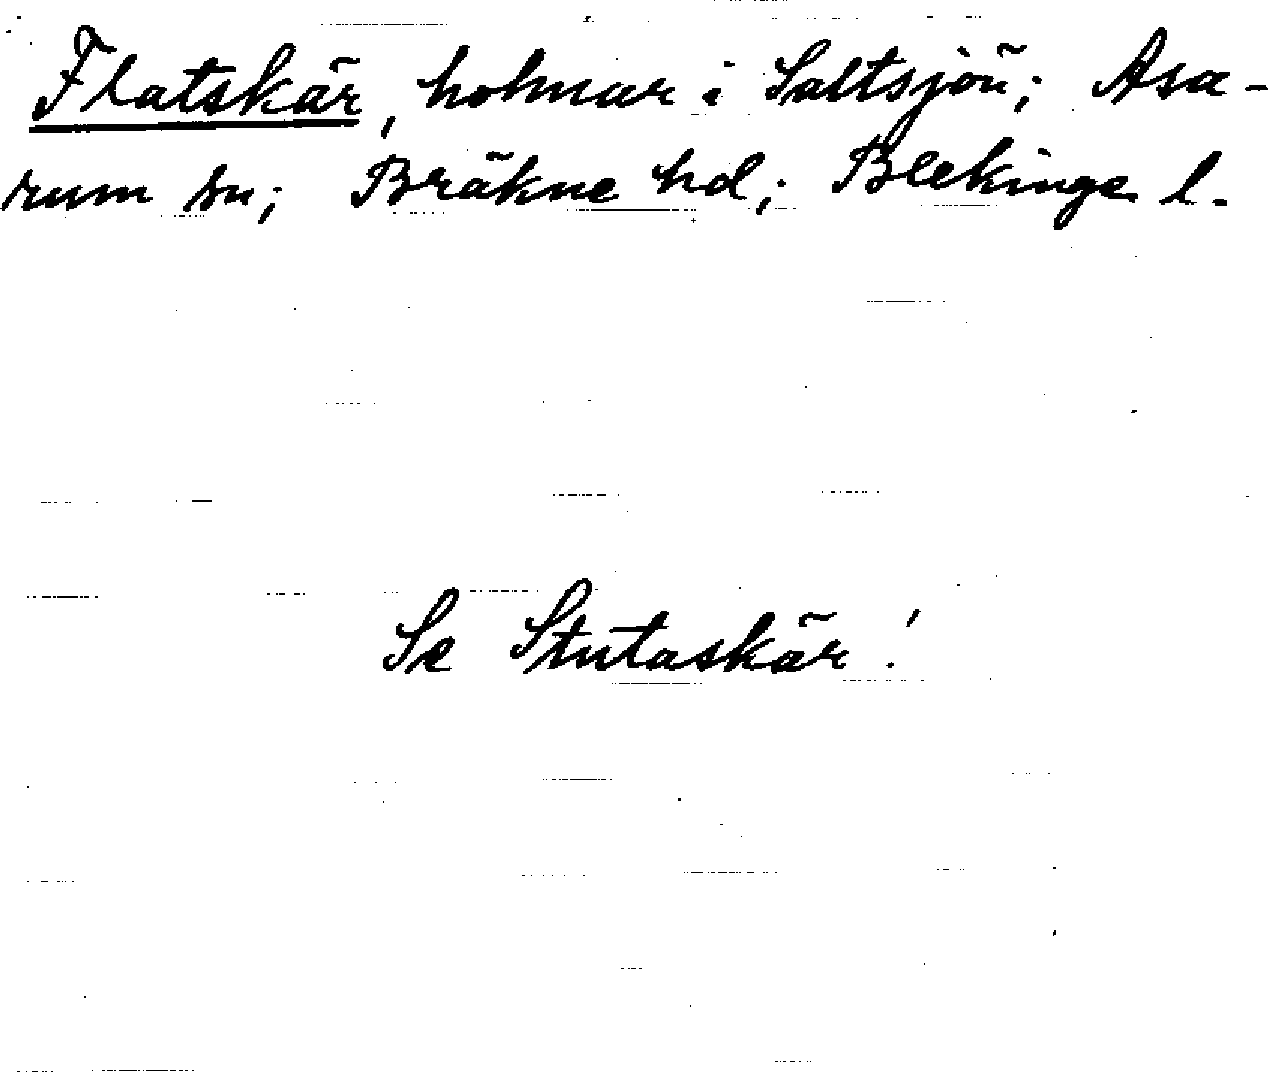 Flatskär, holmar i Saltsjön; Asa-
rum sn; Bräkne hd; Blekinge l.
Se Stutaskär!